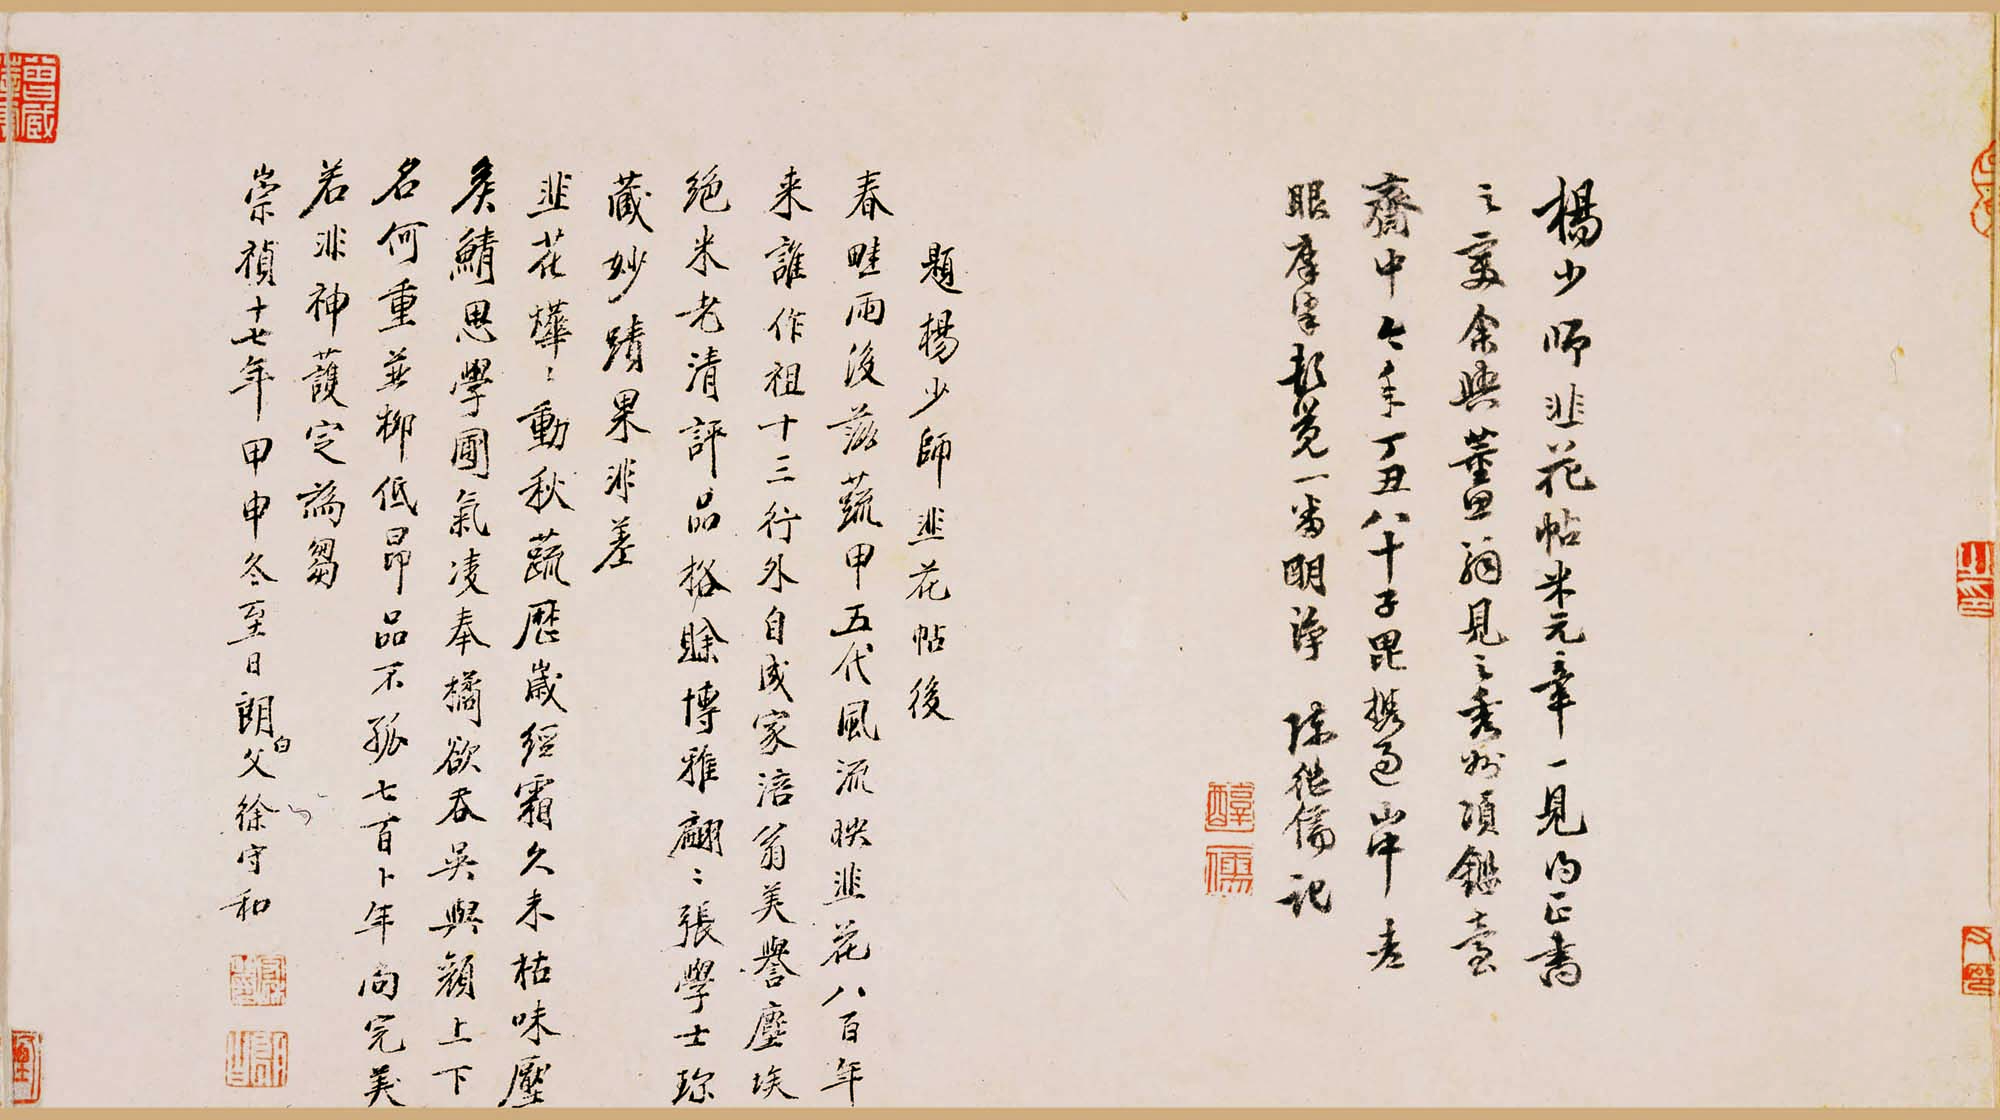 楊少師韭花帖米元章一見得正書
之變余與董思翁見之秀州項鑑臺
齋中今年丁丑八十子毘携過山中老
眼摩挲覚一番明淨 陳継儒記
醇
儒
題楊少師韭花帖後
春畦雨後茲蔬甲五代風流映韭花八百年
来誰作祖十三行外自成家涪翁美譽塵埃
絕米老清評品格賒博雅翩〻張學士珎
藏妙蹟果非差
韭花燁〻動秋蔬歷歲經霜久未枯味壓
矦鯖思學圃氣凌奉橘欲吞吳與顏上下
名何重並柳低昂品不孤七百卜年尚完美
若非神護定為芻
崇禎十七年甲申冬至日朗白父徐守和
曾藏